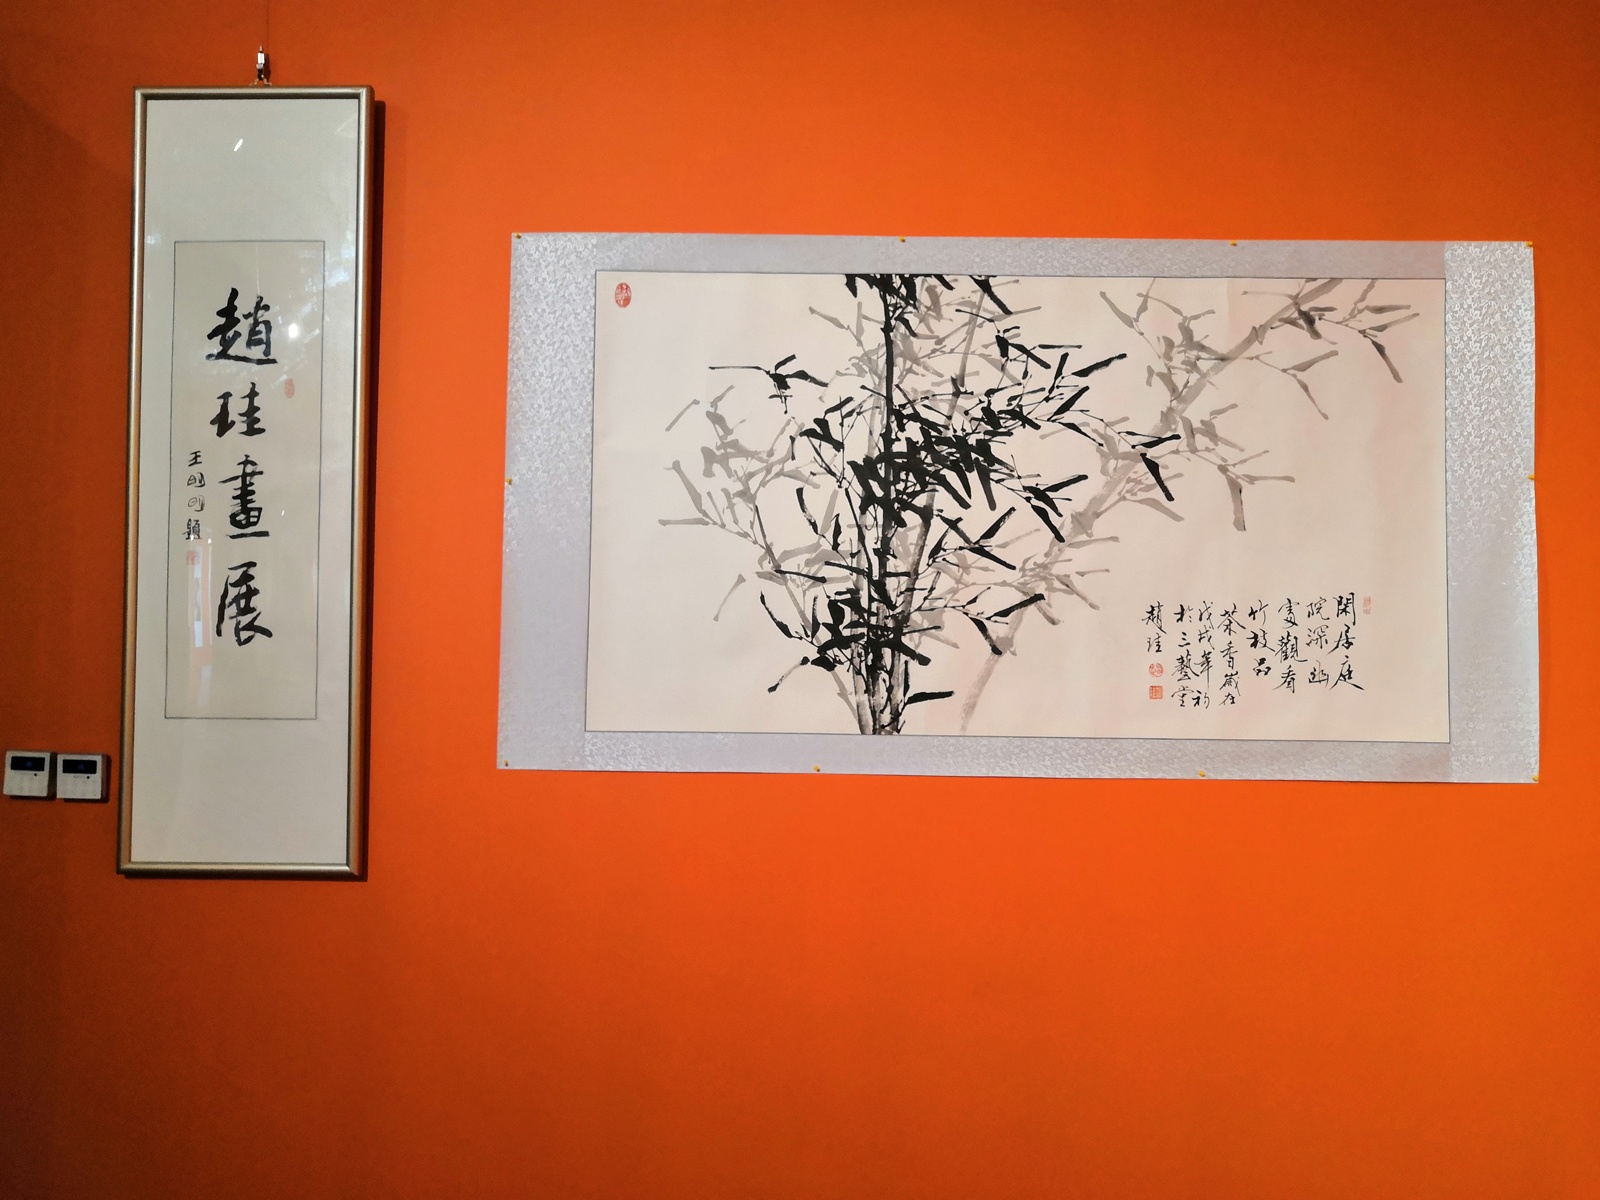 趙珪畫展
王明明題
閑居庭
院深幽
處觀看
竹枝品
茶香歲在
戊戌年初
於三藝堂
趙珪